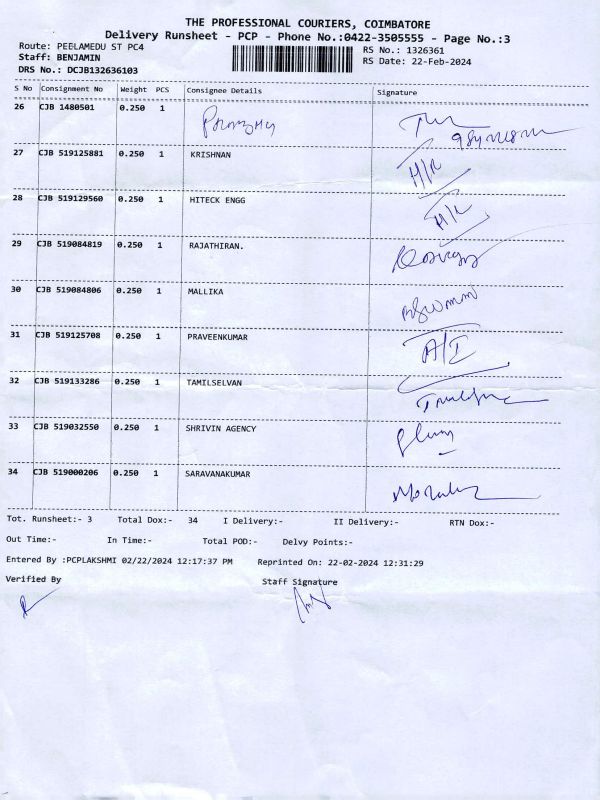 THE PROFESSIONAL COURIERS, COIMBATORE
Delivery Runsheet - PCP - Phone No.:0422-3505555 - Page No.:3
Route: PEELAMEDU ST PC4
RS No.: 1326361
Staff: BENJAMIN
RS Date: 22-Feb-2024
DRS No.: DCJB132636103
S No Consignment No Weight PCS Consignee Details Signature
26 CJB 1480501 0.250 1
27 CJB 519125881 0.250 1 KRISHNAN H/R
28 CJB 519129560 0.250 1 HITECK ENGG
29 CJB 519084819 0.250 1 RAJATHIRAN.
30 CJB 519084806 0.250 1 MALLIKA
31 CJB 519125708 0.250 1 PRAVEENKUMAR A/I
32 CJB 519133286 0.250 1 TAMILSELVAN
33 CJB 519032550 0.250 1 SHRIVIN AGENCY
34 CJB 519000206 0.250 1 SARAVANAKUMAR
Tot. Runsheet:- 3 Total Dox:- 34 I Delivery:- II Delivery:- RTN Dox:-
Out Time:- In Time:- Total POD:- Delvy Points:-
Entered By :PCPLAKSHMI 02/22/2024 12:17:37 PM Reprinted On: 22-02-2024 12:31:29
Verified By Staff Signature